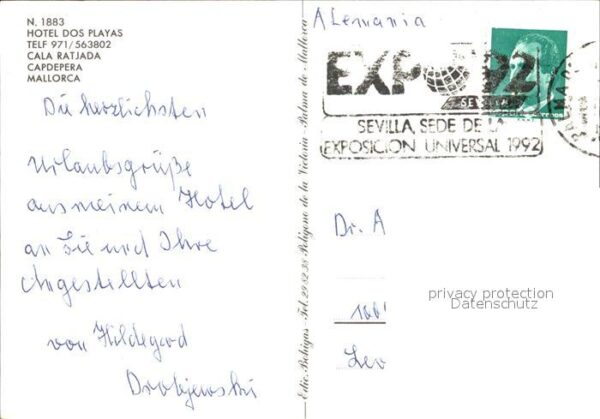 N. 1883
HOTEL DOS PLAYAS
TELF 971/563802
CALA RATJADA
CAPDEPERA
MALLORCA
Die herzlichsten
Urlaubsgrüße
aus meinem Hotel
an Sie und Ihre
Angestellten
von Hildegard
Drobjewski
Edic. Bohigas - Tel. 29 82 38 - Polígono de la Victoria - Palma de Mallorca
Alemania
EXPO 92
SEVILLA
SEVILLA, SEDE DE LA
EXPOSICION UNIVERSAL 1992
Dr. A
100
Leo
privacy protection
Datenschutz